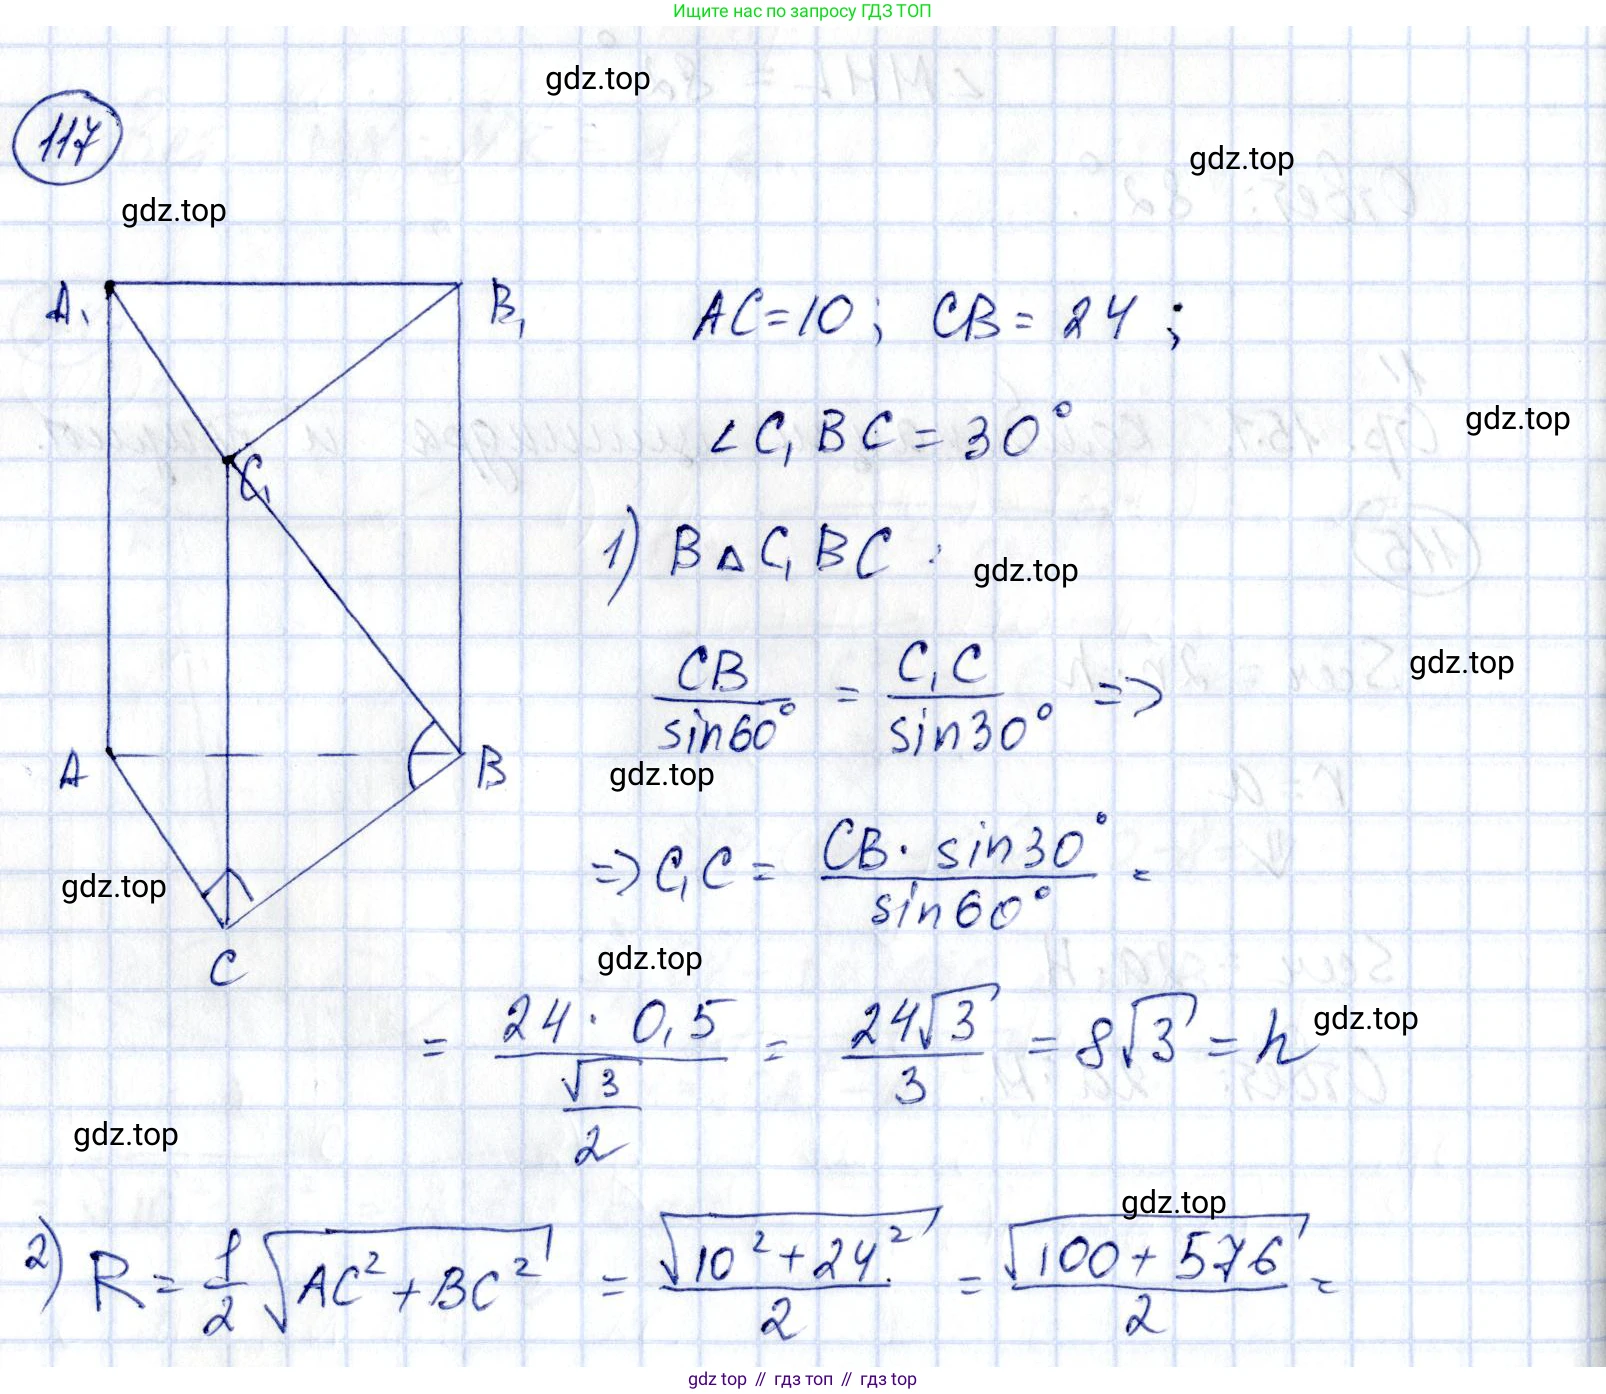 Ищите нас по запросу ГДЗ ТОП
gdz.top
117
gdz.top
gdz.top
A₁ B₁
AC=10; CB = 24;
∠C₁BC = 30°
gdz.top
C₁
1) В △ C₁BC:
gdz.top
CB/sin60° = C₁C/sin30° =>
gdz.top
A B
gdz.top
=> C₁C = CB · sin30°/sin60° =
gdz.top
C
gdz.top
= 24 · 0,5/(√3/2) = 24√3/3 = 8√3 = h
gdz.top
gdz.top
gdz.top
2) R = 1/2 √(AC² + BC²) = √(10² + 24²)/2 = √(100 + 576)/2 =
gdz top // гдз топ // гдз top